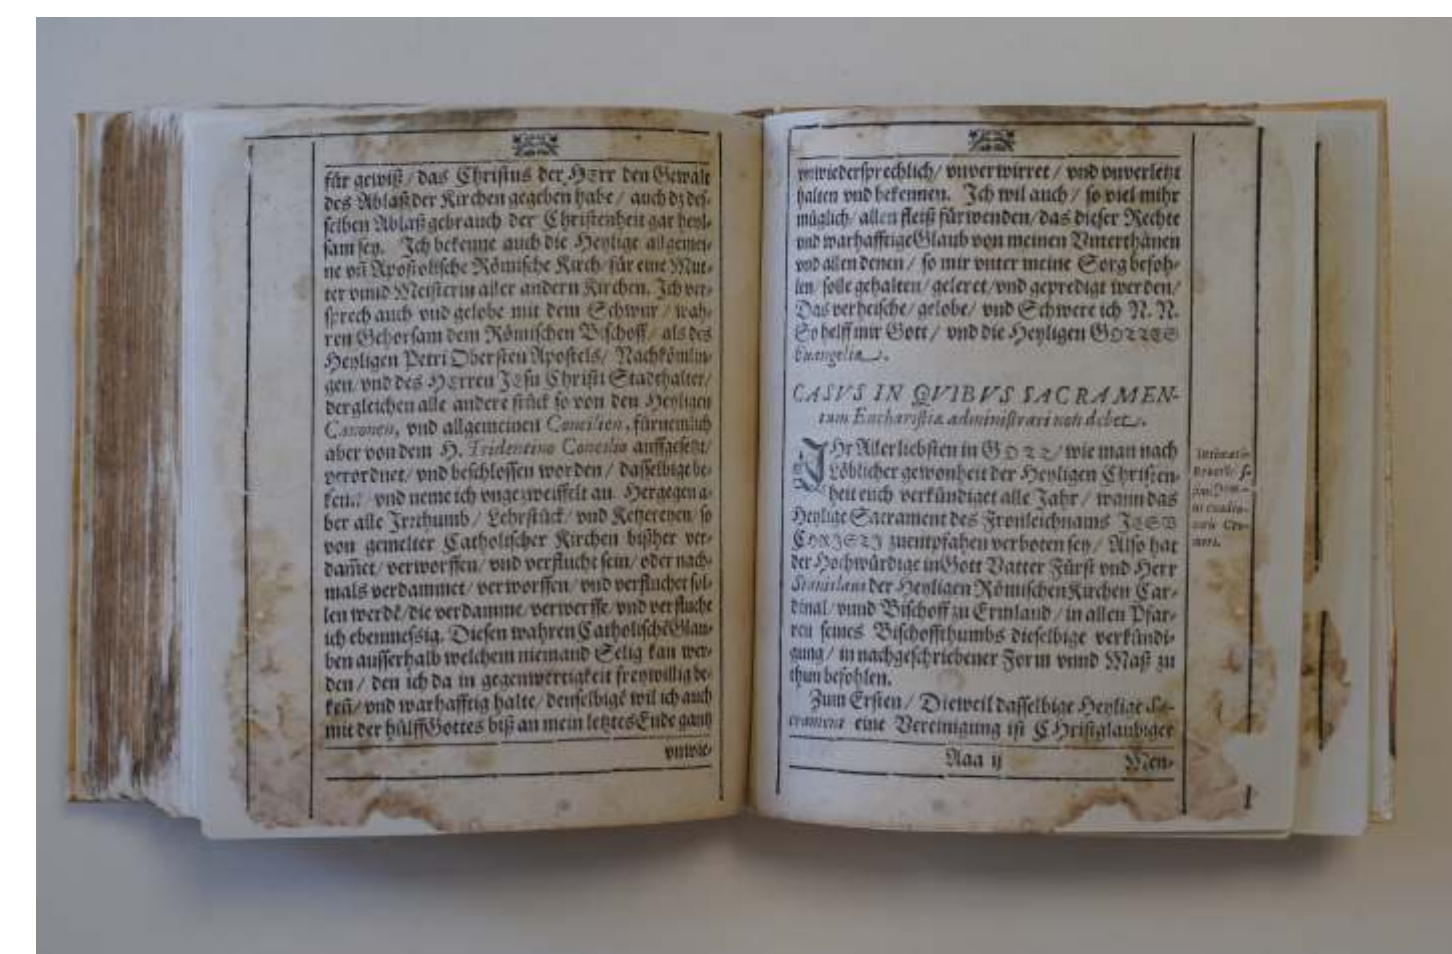 für gewiß / das Christus der HErr den Gewalt
des Ablaß der Kirchen gegeben habe / auch dz des-
selben Ablaß gebrauch der Christenheit gar heyl-
sam sey. Ich bekenne auch die Heylige allgemei-
ne vñ Apostolische Römische Kirch / für eine Mut-
ter vnnd Meisterin aller andern Kirchen. Ich ver-
sprech auch vnd gelobe mit dem Schwur / wah-
ren Gehorsam dem Römischen Bischoff / als des
Heyligen Petri Obersten Apostels / Nachkömlin-
gen / vnd des HErren JEsu Christi Stadthalter /
dergleichen alle andere stück so von den Heyligen
Canonen, vnd allgemeinen Concilien, fürnemlich
aber von dem H. Tridentino Concilio auffgesetzt /
verordnet / vnd beschlossen worden / dasselbige be-
ken: vnd neme ich vngezweiffelt an. Hergegen a-
ber alle Irrthumb / Lehrstück / vnd Ketzereyen / so
von gemelter Catholischer Kirchen bißher ver-
dam̃et / verworffen / vnd verflucht sein / oder nach-
mals verdammet / verworffen / vnd verfluchet sol-
len werdē / die verdamme / verwerffe / vnd verfluche
ich ebenmessig. Diesen wahren Catholischē Glau-
ben ausserhalb welchem niemand Selig kan wer-
den / den ich da in gegenwertigkeit freywillig be-
keñ / vnd warhafftig halte / denselbigē wil ich auch
mit der hülff Gottes biß an mein letztes Ende gantz
vnwie-
vnwiedersprechlich / vnverwirret / vnd vnverletzt
halten vnd bekennen. Ich wil auch / so viel mihr
müglich / allen fleiß fürwenden / das dieser Rechte
vnd warhafftige Glaub von meinen Vnterthänen
vnd allen denen / so mir vnter meine Sorg befoh-
len / solle gehalten / geleret / vnd gepredigt werden /
Das verheische / gelobe / vnd Schwere ich N. N.
So helff mir Gott / vnd die Heyligen GOTTES
Euangelia.
CASVS IN QVIBVS SACRAMEN-
tum Eucharistiæ administrari non debet.
IHr Allerliebsten in GOTT / wie man nach
Löblicher gewonheit der Heyligen Christen-
heit euch verkündiget alle Jahr / wann das
Heylige Sacrament des Fronleichnams JESV
CHRISTI zuentpfahen verboten sey / Also hat
der Hochwürdige in Gott Vatter Fürst vnd Herr
Stanislaus der Heyligen Römischen Kirchen Car-
dinal / vnnd Bischoff zu Ermland / in allen Pfar-
ren seines Bischoffthumbs dieselbige verkündi-
gung / in nachgeschriebener Form vnnd Maß zu
thun befohlen.
Zum Ersten / Dieweil dasselbige Heylige Sa-
crament eine Vereinigung ist CHristglaubiger
Aaa ij Men-